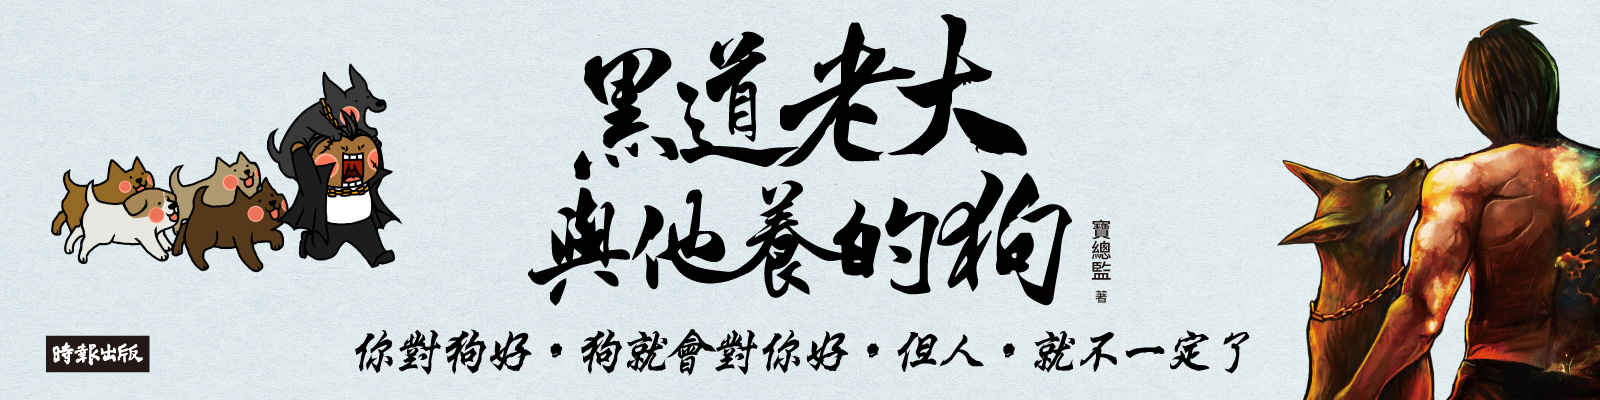 黑道老大
與他養的狗
寶總監 著
你對狗好・狗就會對你好・但人・就不一定了
時報出版